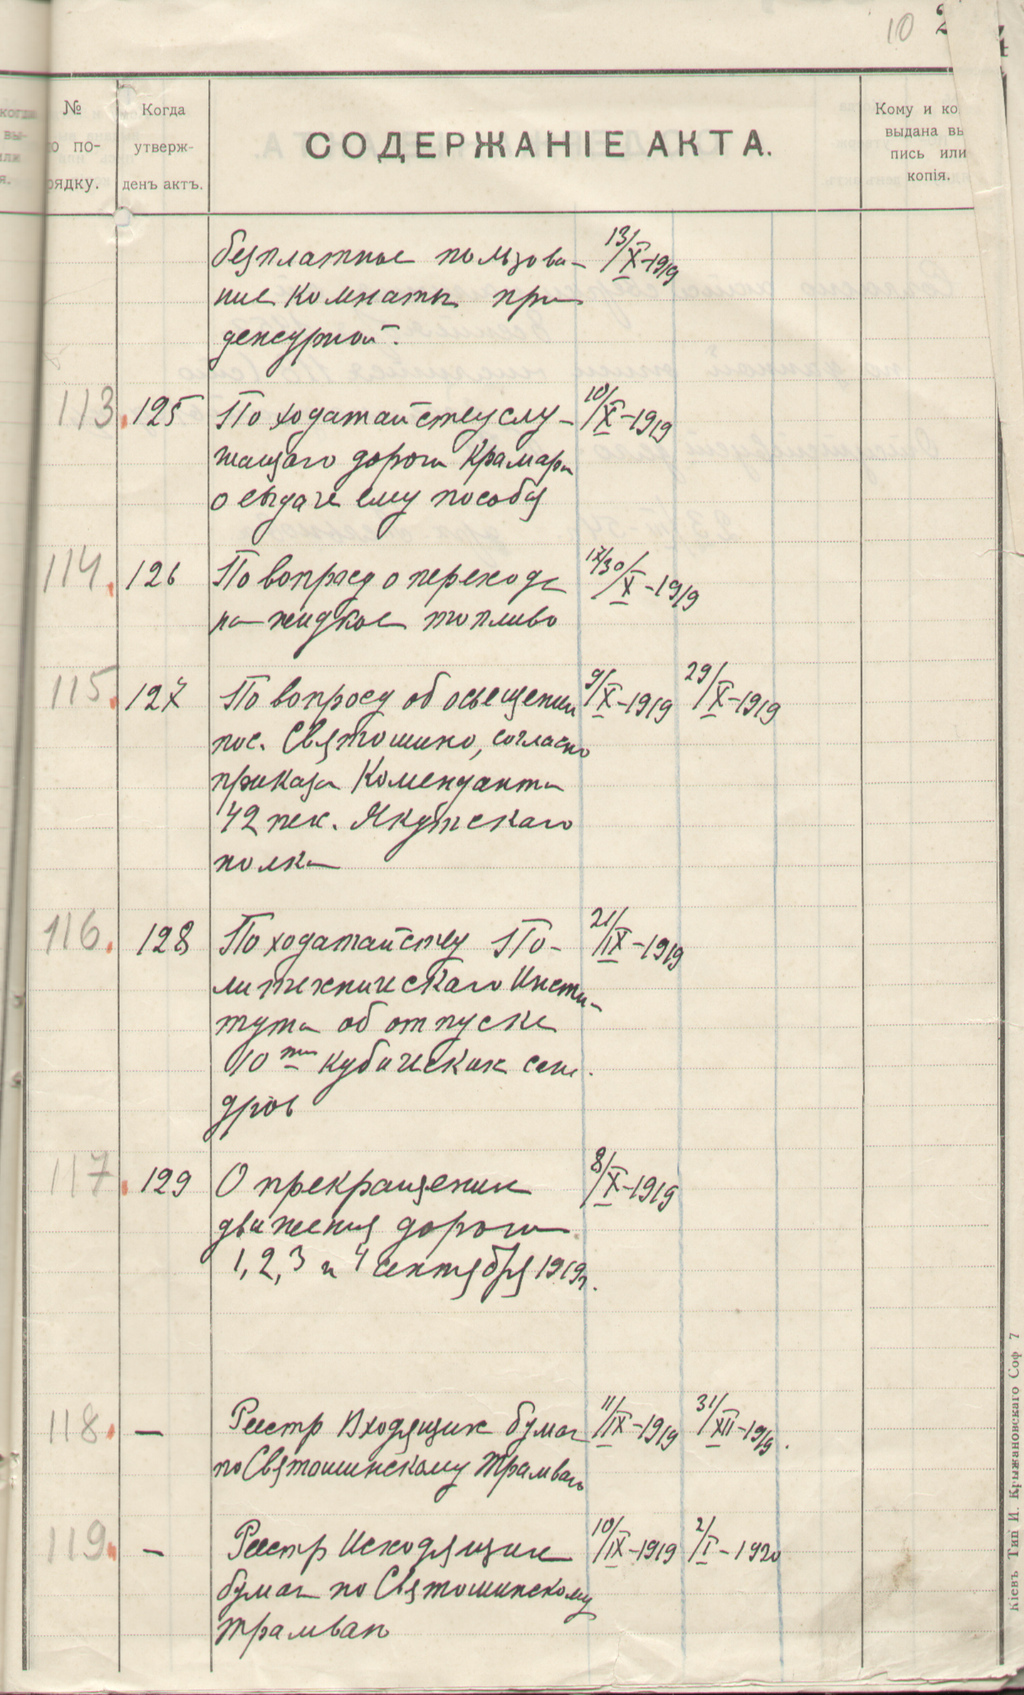 10
№
по по-
рядку.
Когда
утверж-
денъ актъ.
СОДЕРЖАНІЕ АКТА.
Кому и ко
выдана вы
пись или
копія.
безплатное пользова- 13/X-1919
ние комнаты при
дежурной.
113. 125 По ходатайству слу- 10/X-1919
жащаго дороги Крамар
о выдаче ему пособия
114. 126 По вопросу о переходе 17/30/X-1919
на жидкое топливо
115. 127 По вопросу об освещении 9/X-1919 29/X-1919
пос. Святошино, согласно
приказа Коменданта
42 пех. Якутскаго
полка
116. 128 По ходатайству По- 21/IX-1919
литехническаго Инсти-
тута об отпуске
10ти кубических саж.
дров
117. 129 О прекращении 8/X-1919
движения дороги
1, 2, 3 и 4 сентября 1919г.
118. — Реестр Входящих бумаг 11/IX-1919 31/XII-1919.
по Святошинскому Трамваю
119. — Реестр Исходящих 10/IX-1919 2/I-1920
бумаг по Святошинскому
трамваю
Кіевъ Тип И. Крыжановскаго Соф 7